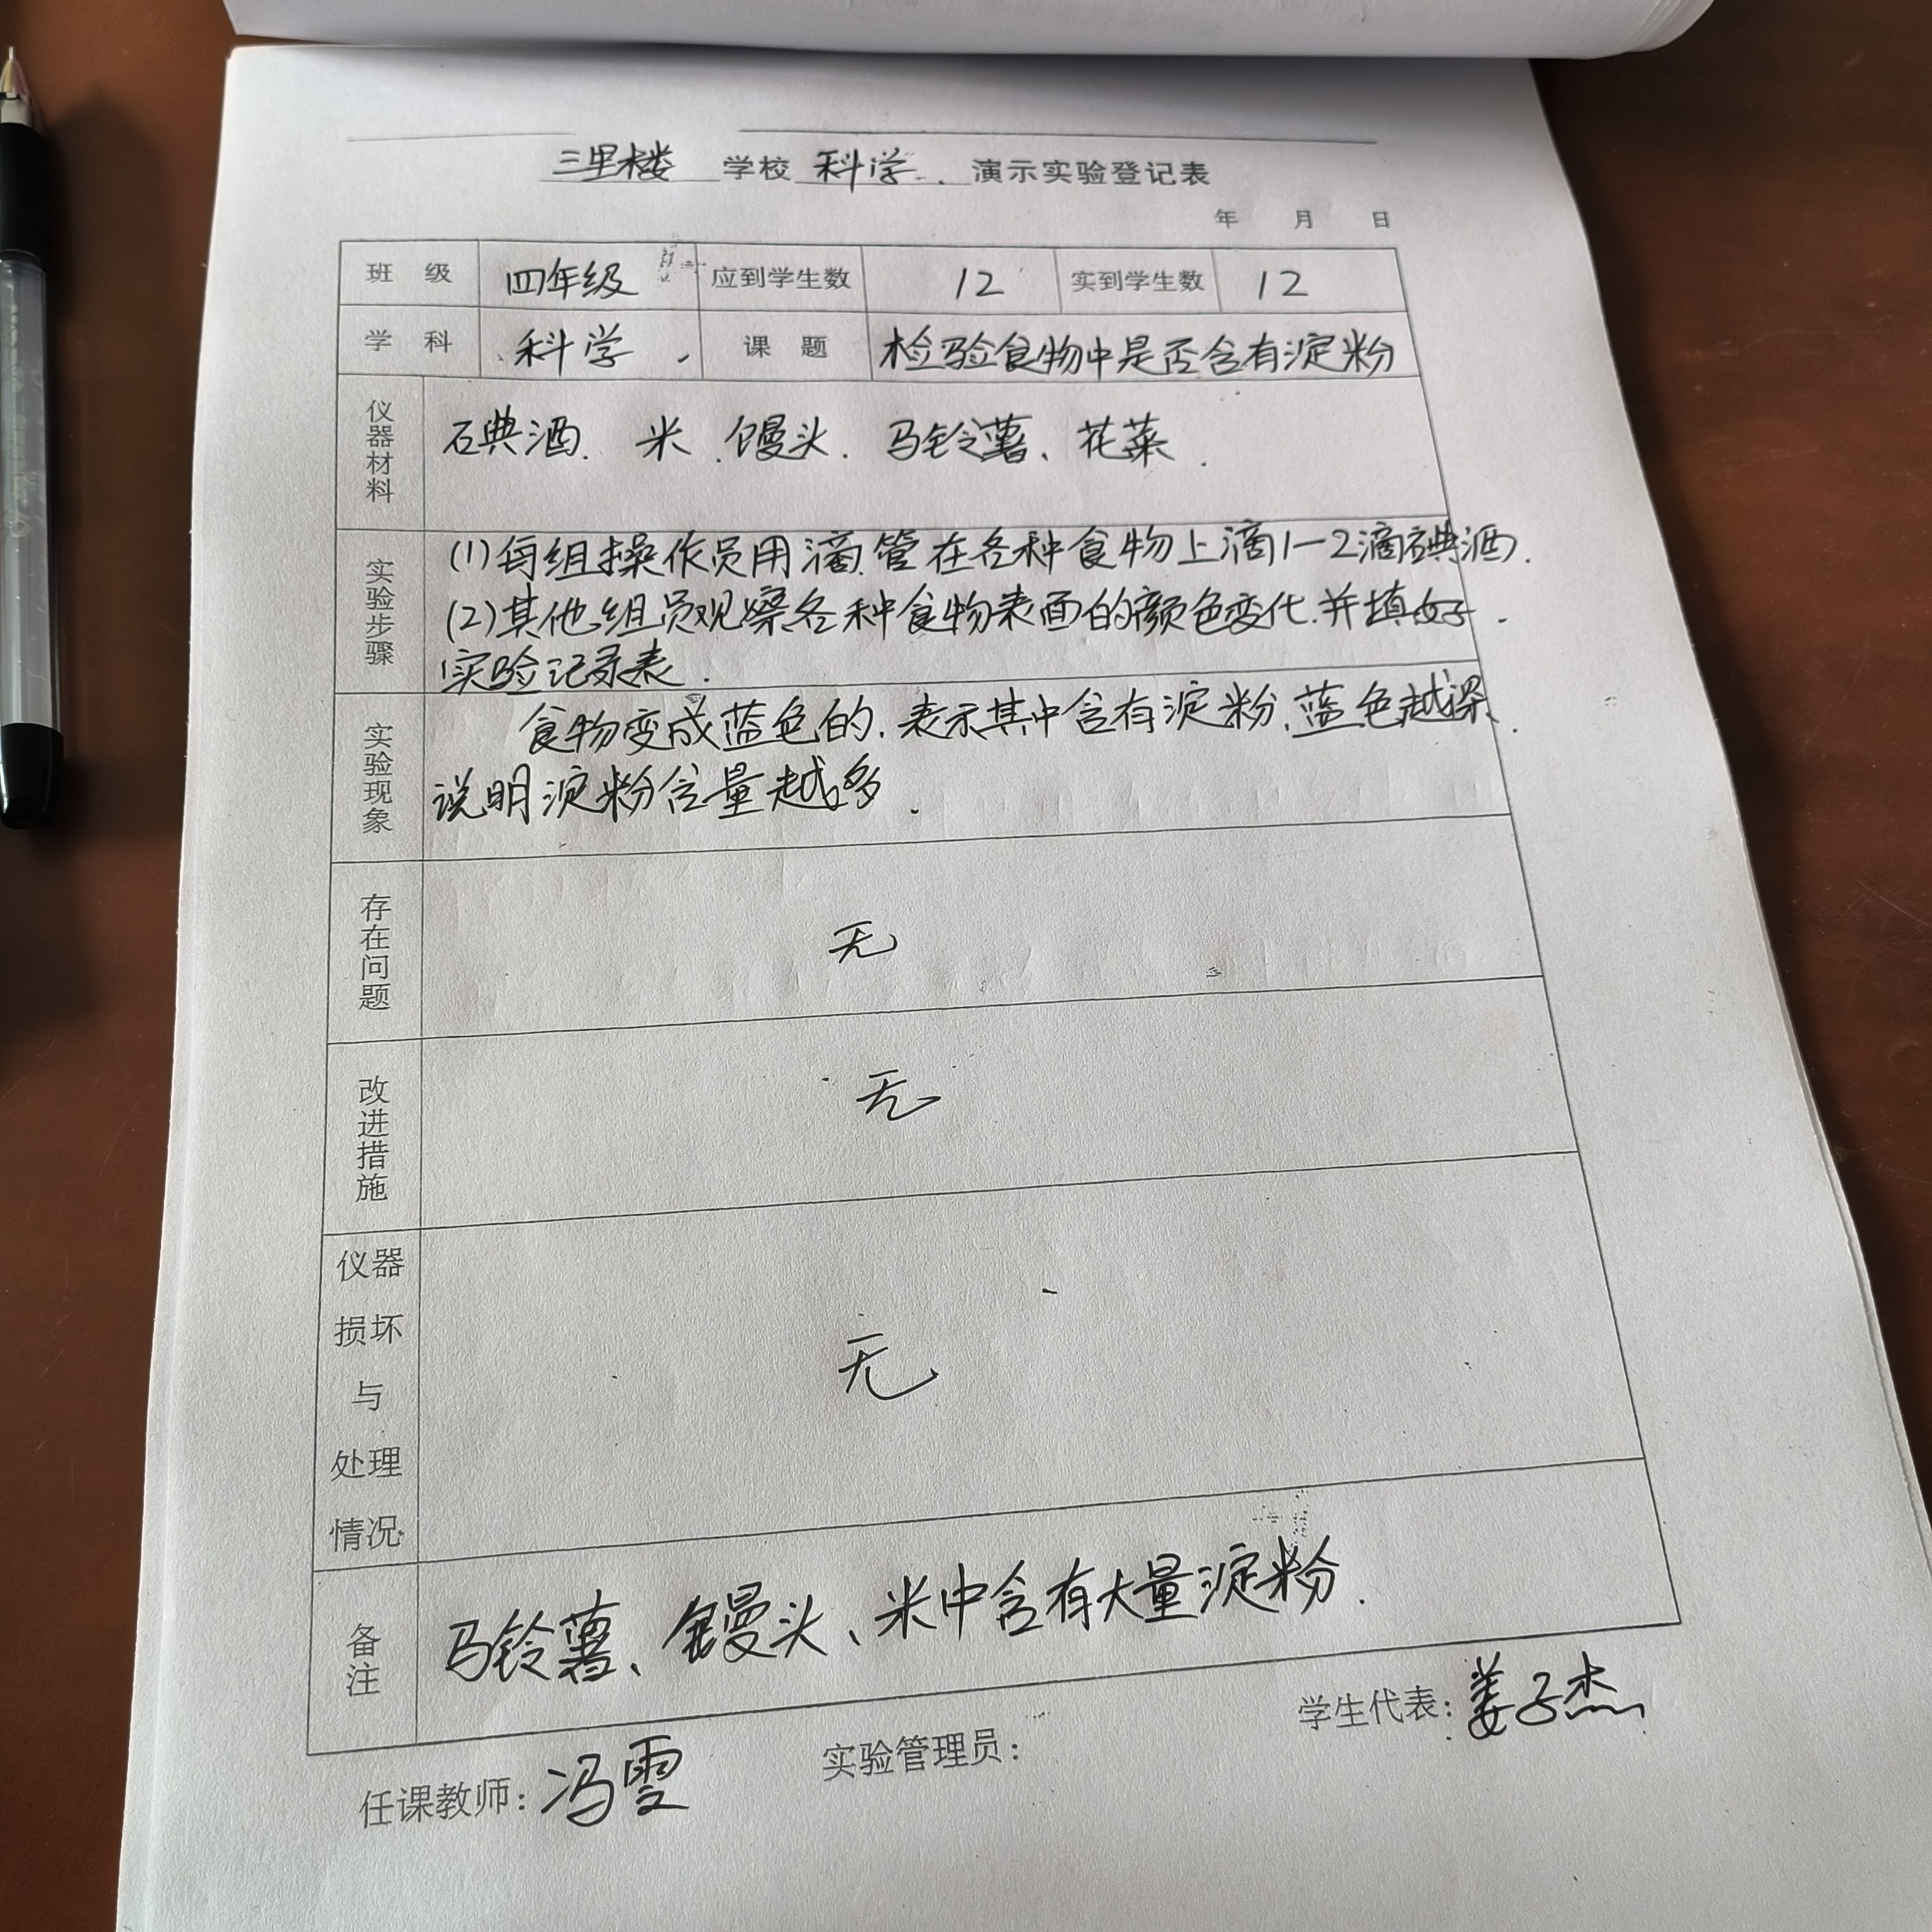 三里楼 学校 科学 演示实验登记表
年 月 日
班 级 四年级 应到学生数 12 实到学生数 12
学 科 科学 课 题 检验食物中是否含有淀粉
仪器材料 碘酒、米、馒头、马铃薯、花菜.
实验步骤 (1)每组操作员用滴管在各种食物上滴1—2滴碘酒.
(2)其他组员观察各种食物表面的颜色变化.并填好
实验记录表.
实验现象 食物变成蓝色的,表示其中含有淀粉,蓝色越深、
说明淀粉含量越多.
存在问题 无
改进措施 无
仪器损坏与处理情况 无
备注 马铃薯、馒头、米中含有大量淀粉.
任课教师: 冯雯 实验管理员: 学生代表: 姜子杰